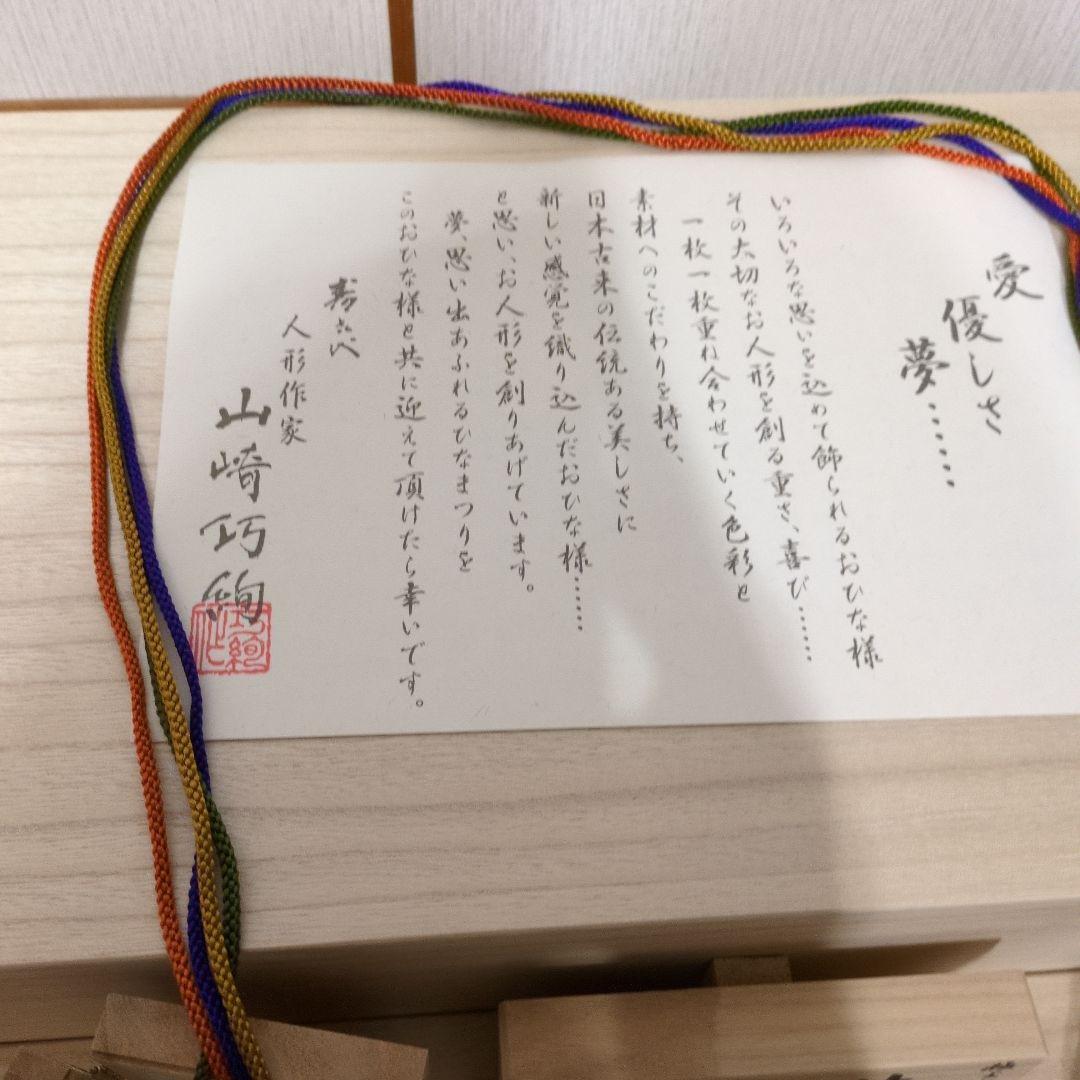 愛
優しさ
夢……
いろいろな思いを込めて飾られるおひな様
その大切なお人形を創る重さ、喜び……
一枚一枚重ね合わせていく色彩と
素材へのこだわりを持ち、
日本古来の伝統ある美しさに
新しい感覚を織り込んだおひな様……
と思い、お人形を創りあげています。
夢、思い出あふれるひなまつりを
このおひな様と共に迎えて頂けたら幸いです。
人形作家
山崎巧絢